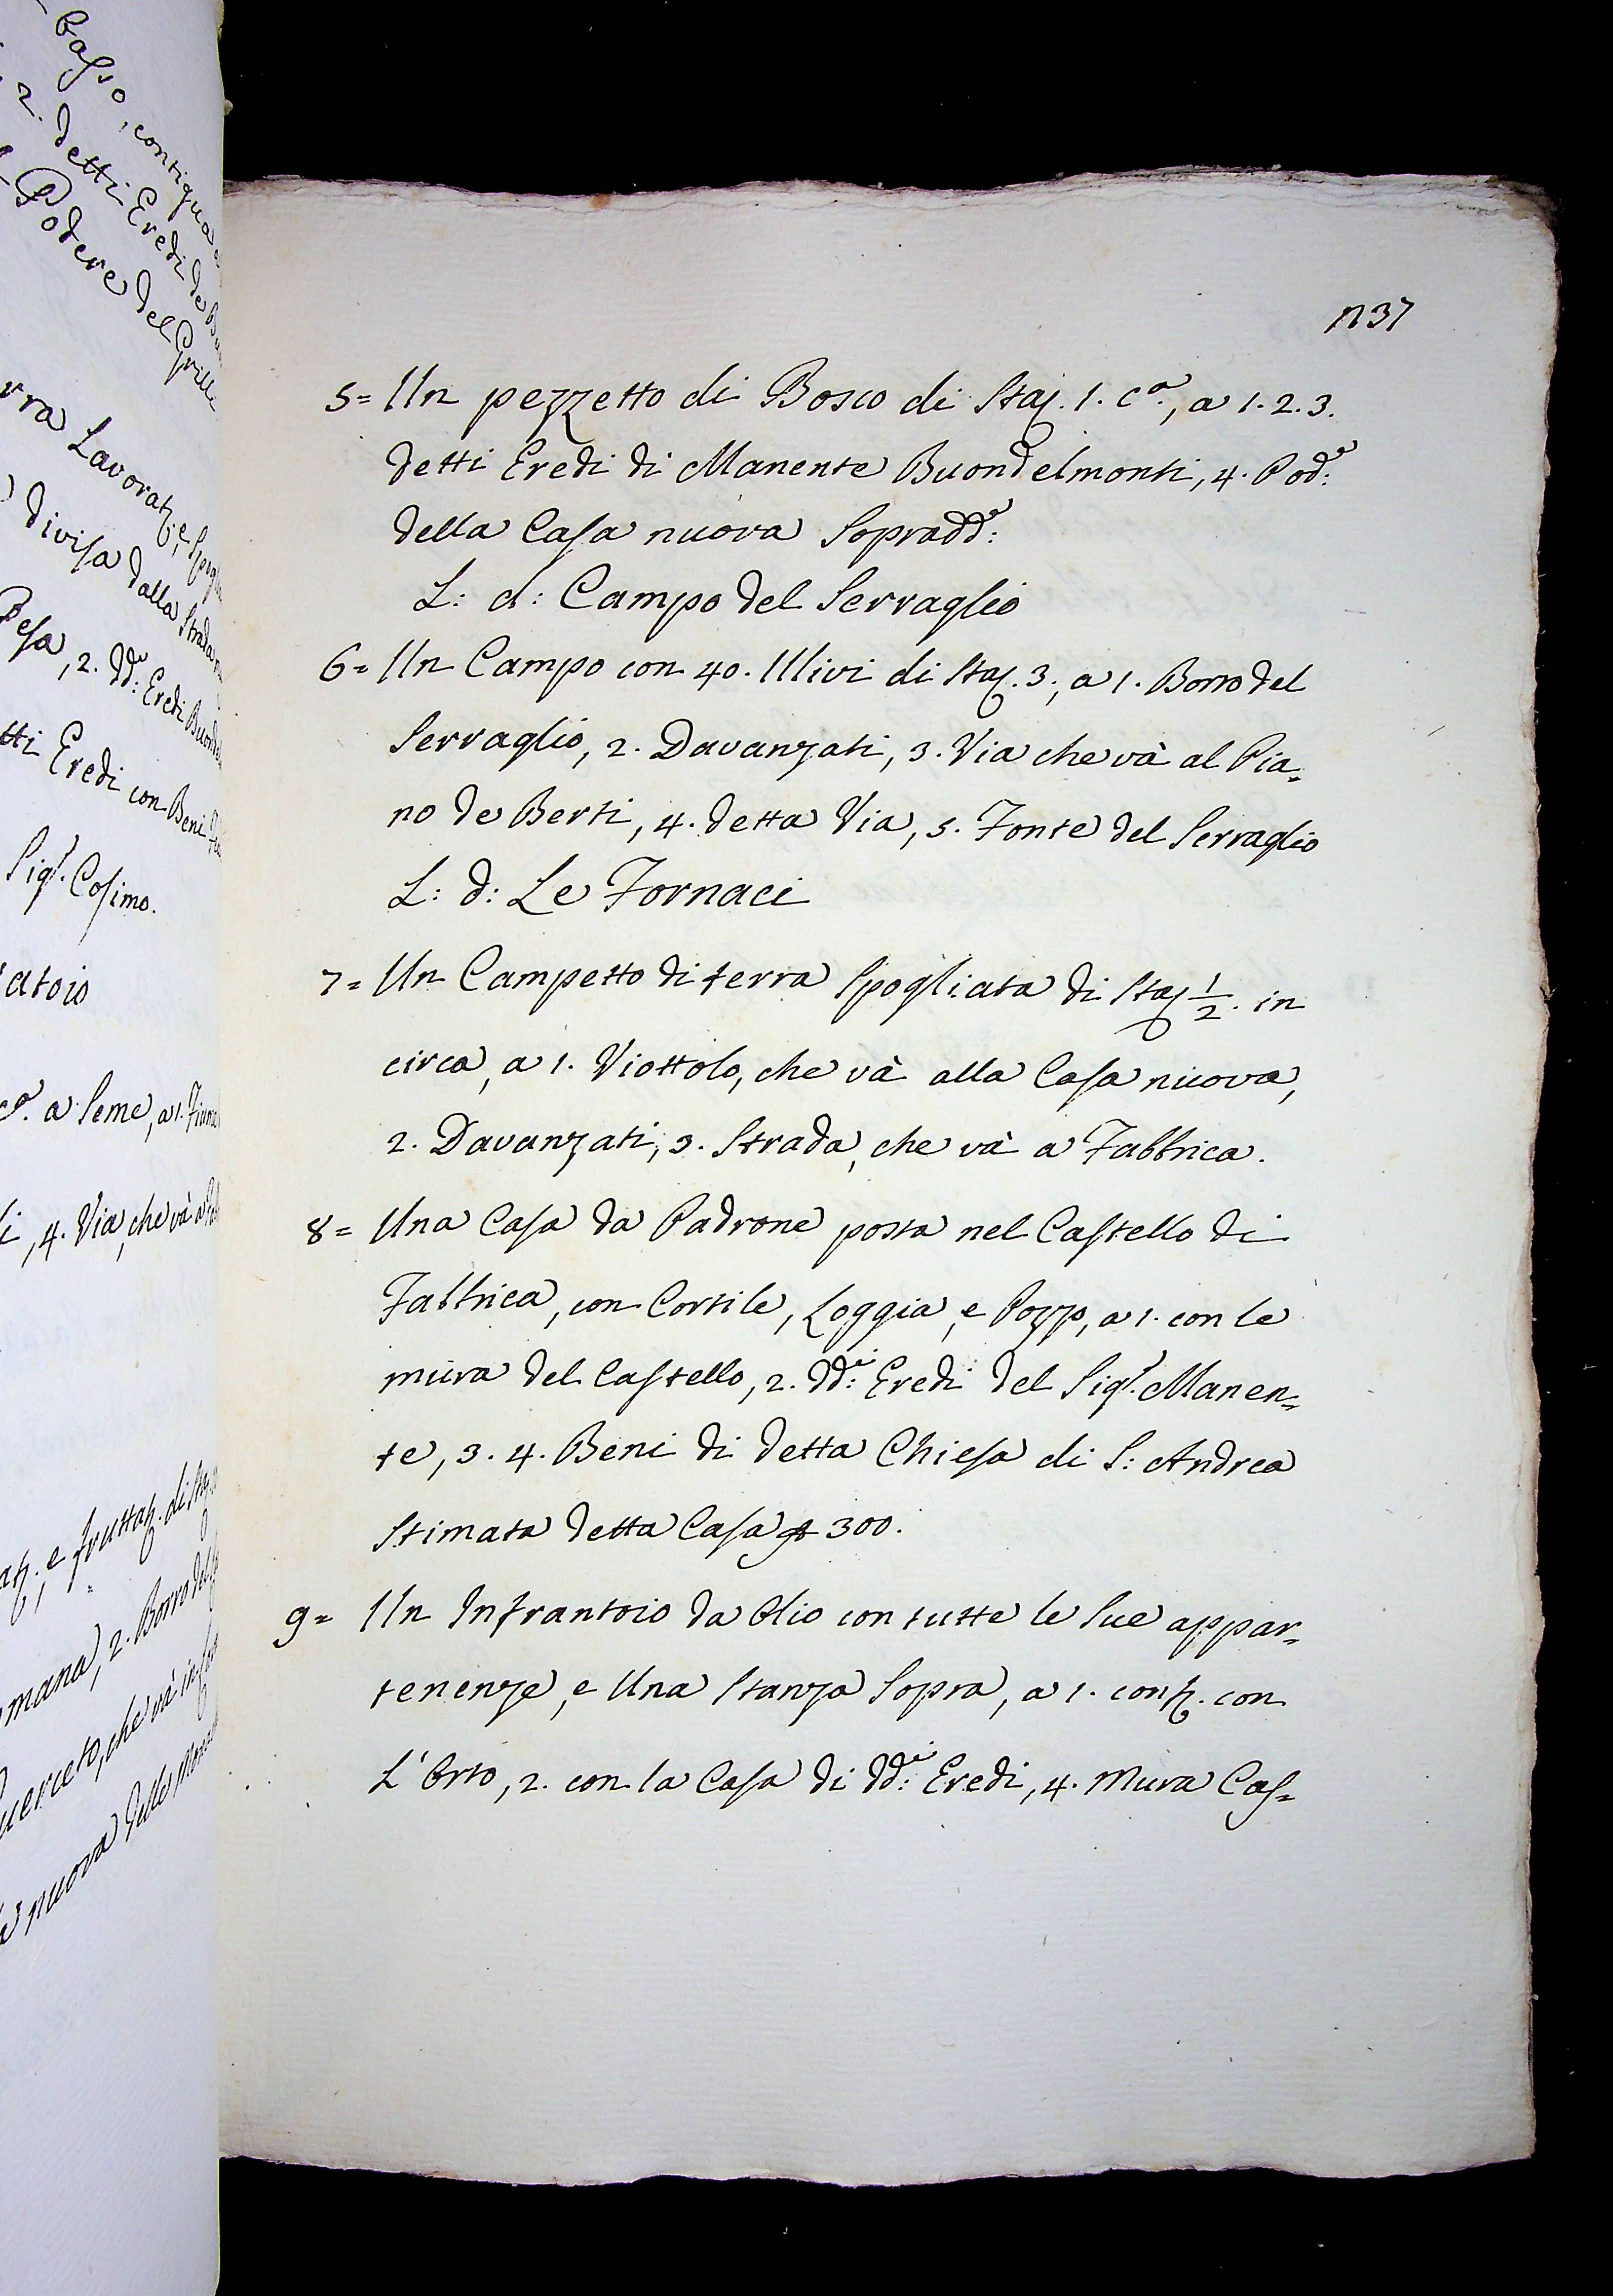 Basso, contigua
2. detti Eredi de
Podere del Grille
rra Lavorat:, e Spogl
divisa dalla Strada
Pesa, 2. dd:i Eredi Buondel
tti Eredi con Beni
Sig.r Cosimo.
atoio
a Seme, a 1. Fiume
i, 4. Via, che và a
at:, e fruttat: di
mana, 2. Borro del
uerceto, che và in
nuova delle
1137
5= Un pezzetto di Bosco di Staj. 1. C.a, a 1. 2. 3.
detti Eredi di Manente Buondelmonti, 4. Pod:e
della Casa nuova Sopradd:a
L: d: Campo del Serraglio
6= Un Campo con 40. Ulivi di Staj. 3., a 1. Borro del
Serraglio, 2. Davanzati, 3. Via che và al Pia=
no de Berti, 4. detta Via, 5. Fonte del Serraglio
L: d: Le Fornaci
7= Un Campetto di terra Spogliata di Staj 1/2. in
circa, a 1. Viottolo, che và alla Casa nuova,
2. Davanzati, 3. Strada, che và a Fabbrica.
8= Una Casa da Padrone posta nel Castello di
Fabbrica, con Cortile, Loggia, e Pozzo, a 1. con le
mura del Castello, 2. dd:i Eredi del Sig.r Manen=
te, 3. 4. Beni di detta Chiesa di S: Andrea
Stimata detta Casa 300.
9= Un Infrantoio da Olio con tutte le Sue appar=
tenenze, e Una Stanza Sopra, a 1. conf. con
L'Orto, 2. con la Casa di dd:i Eredi, 4. Mura Cas=